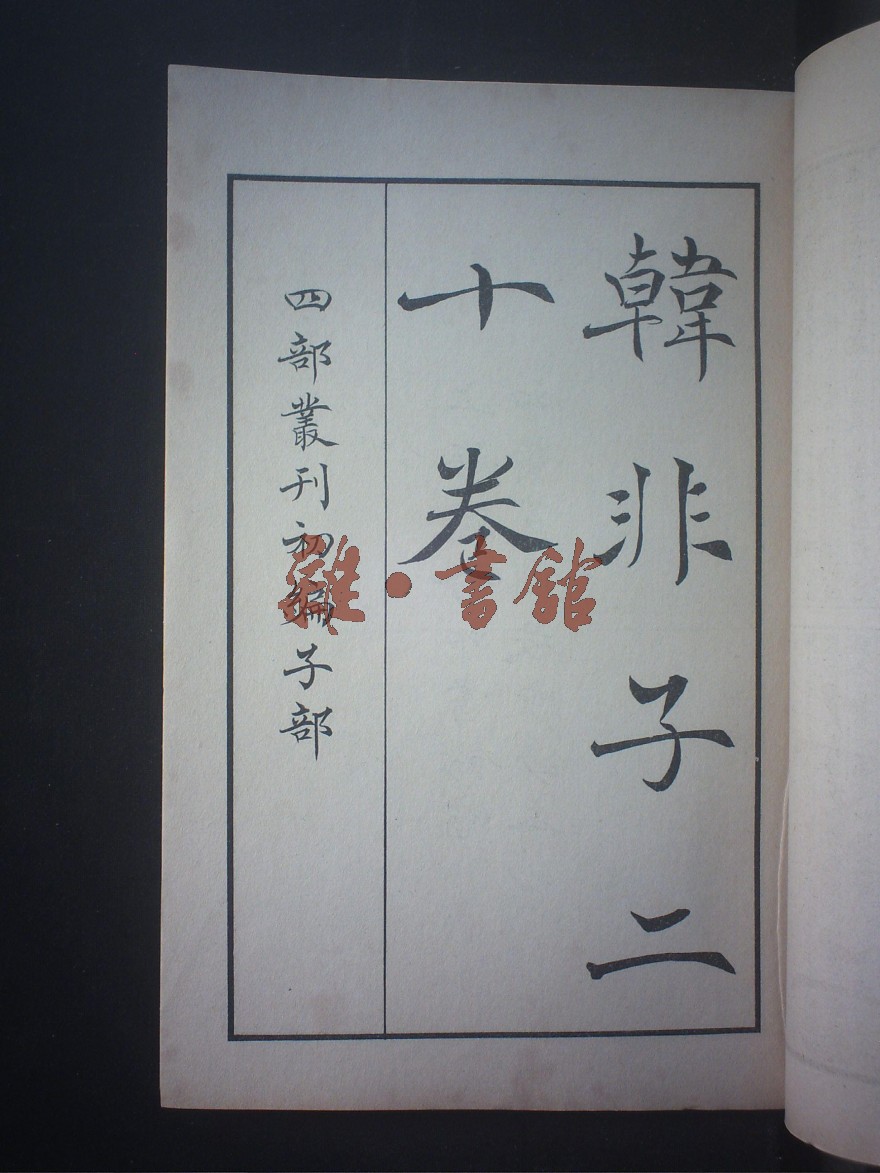 韓非子二
十卷
四部叢刊初編子部
雒·書館